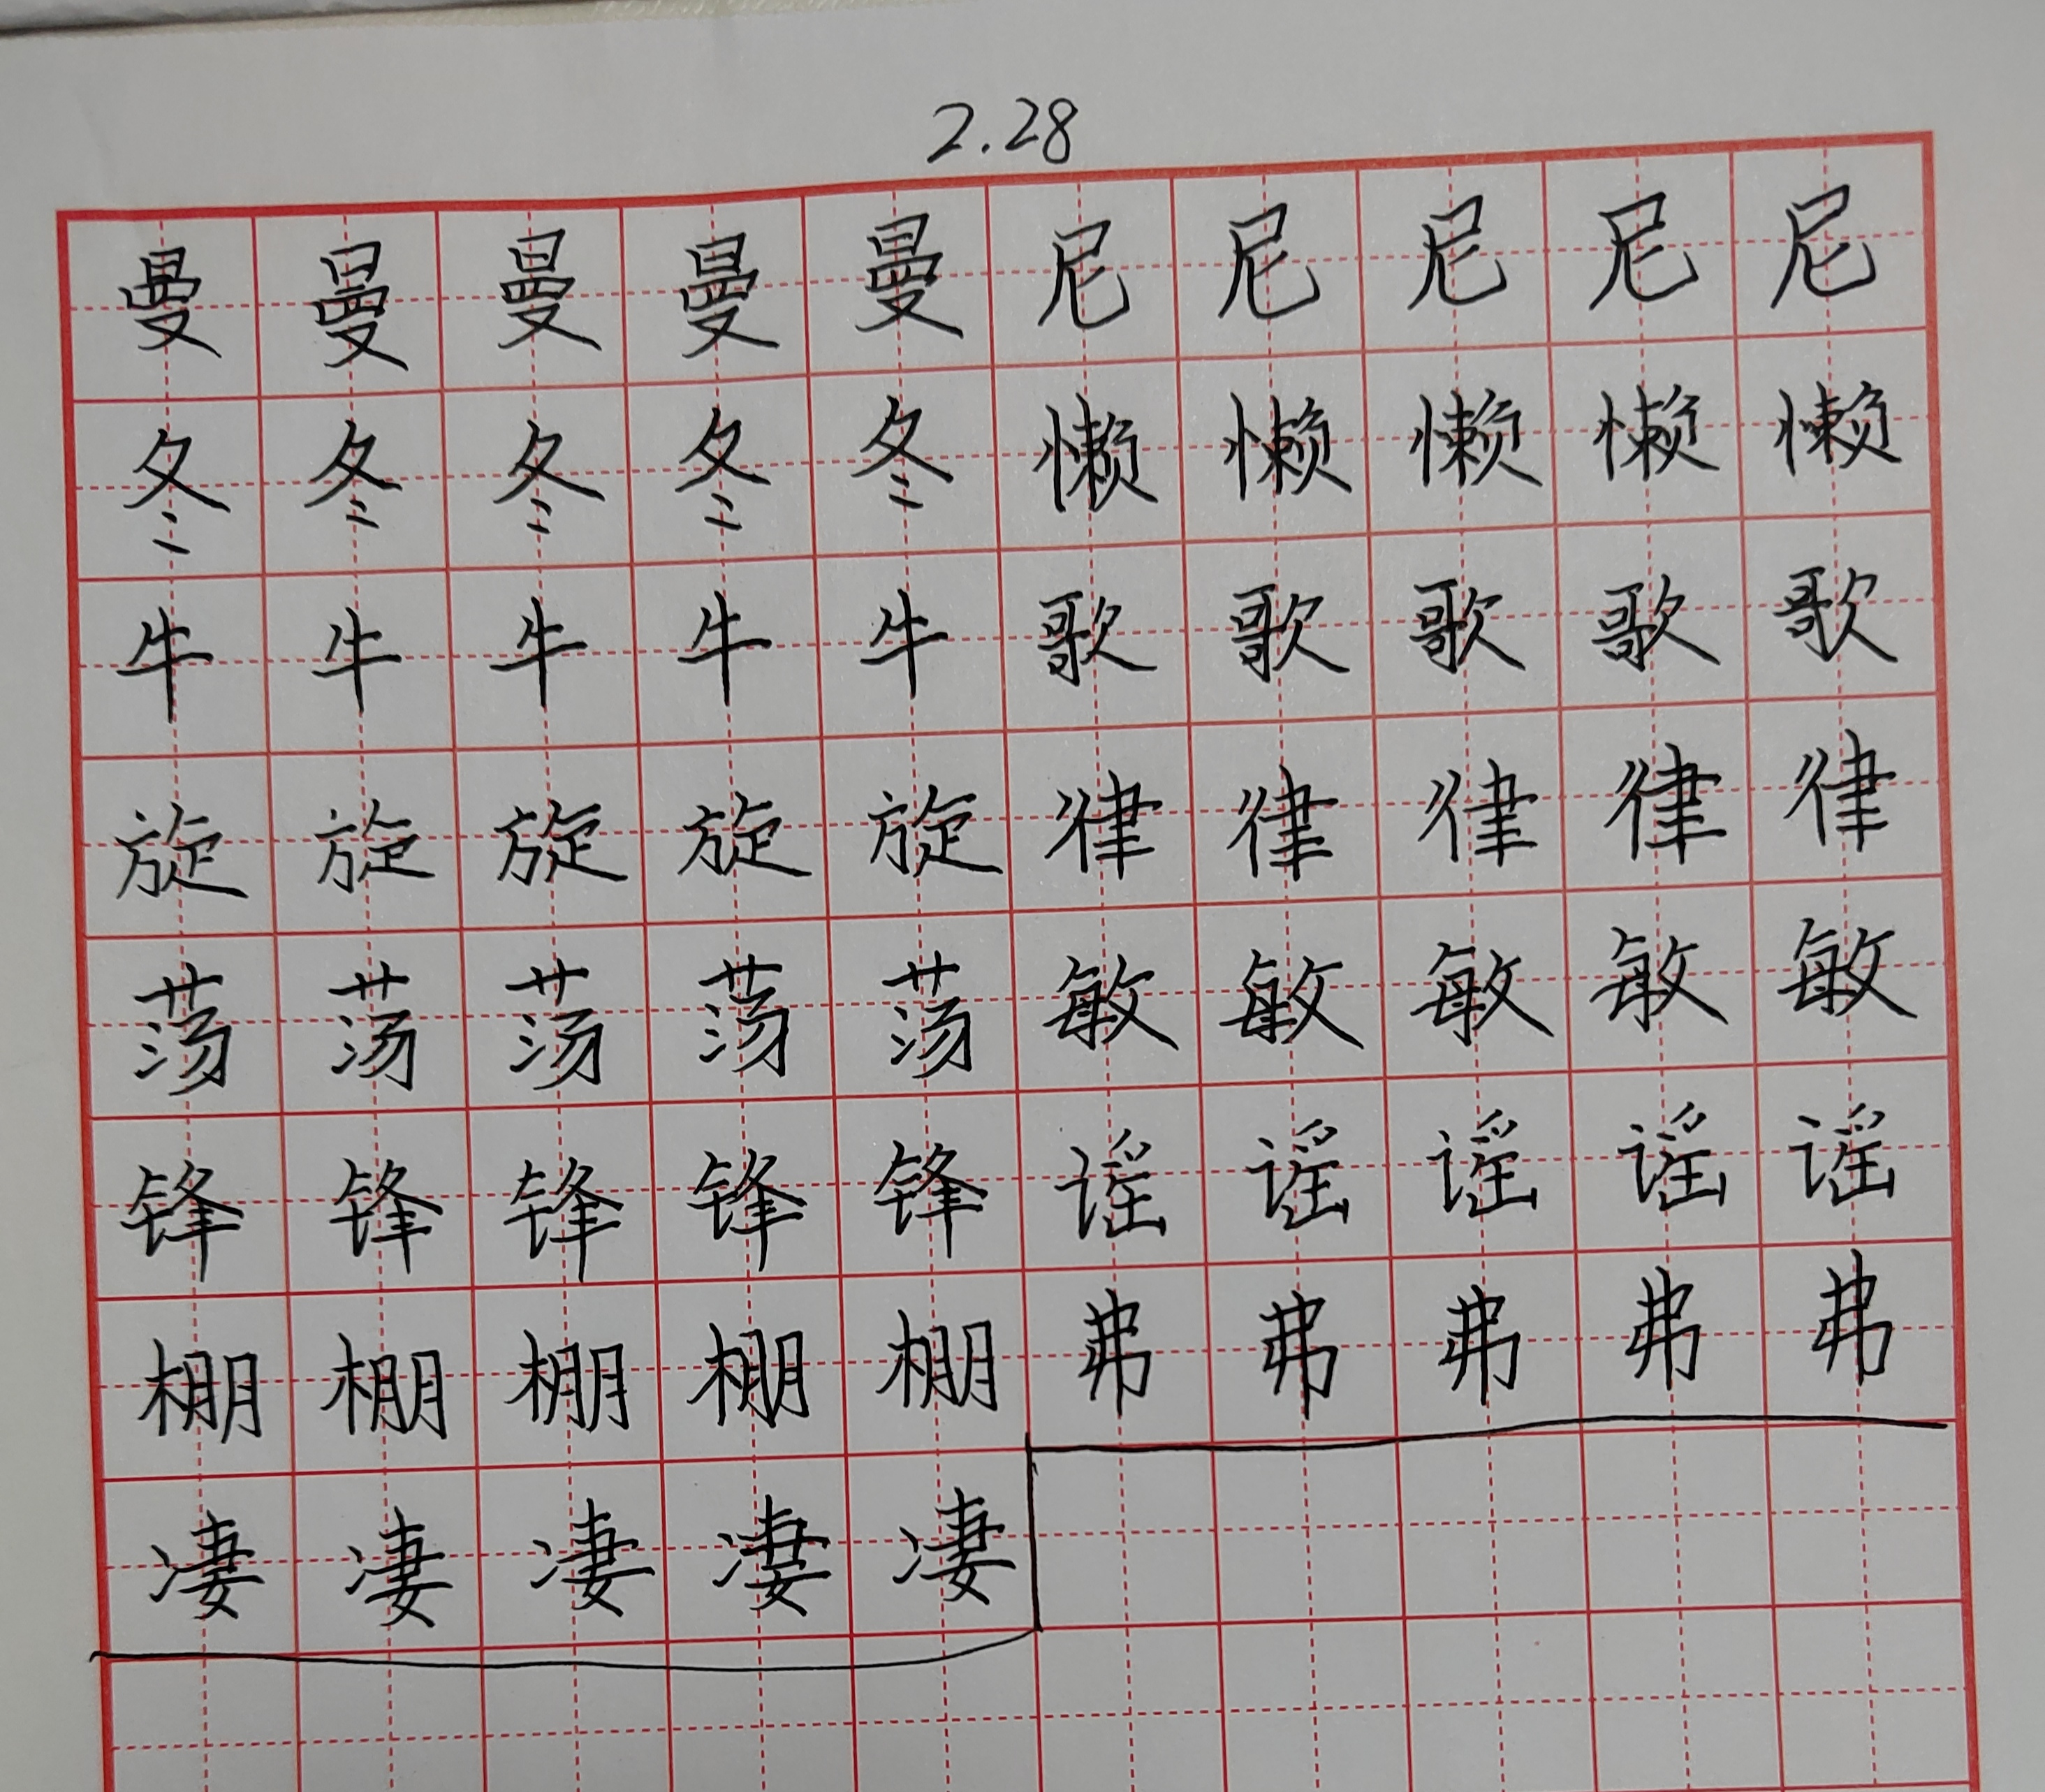 2.28
曼曼曼曼曼尼尼尼尼尼
冬冬冬冬冬懒懒懒懒懒
牛牛牛牛牛歌歌歌歌歌
旋旋旋旋旋律律律律律
荡荡荡荡荡敏敏敏敏敏
锋锋锋锋锋谣谣谣谣谣
棚棚棚棚棚弗弗弗弗弗
凄凄凄凄凄